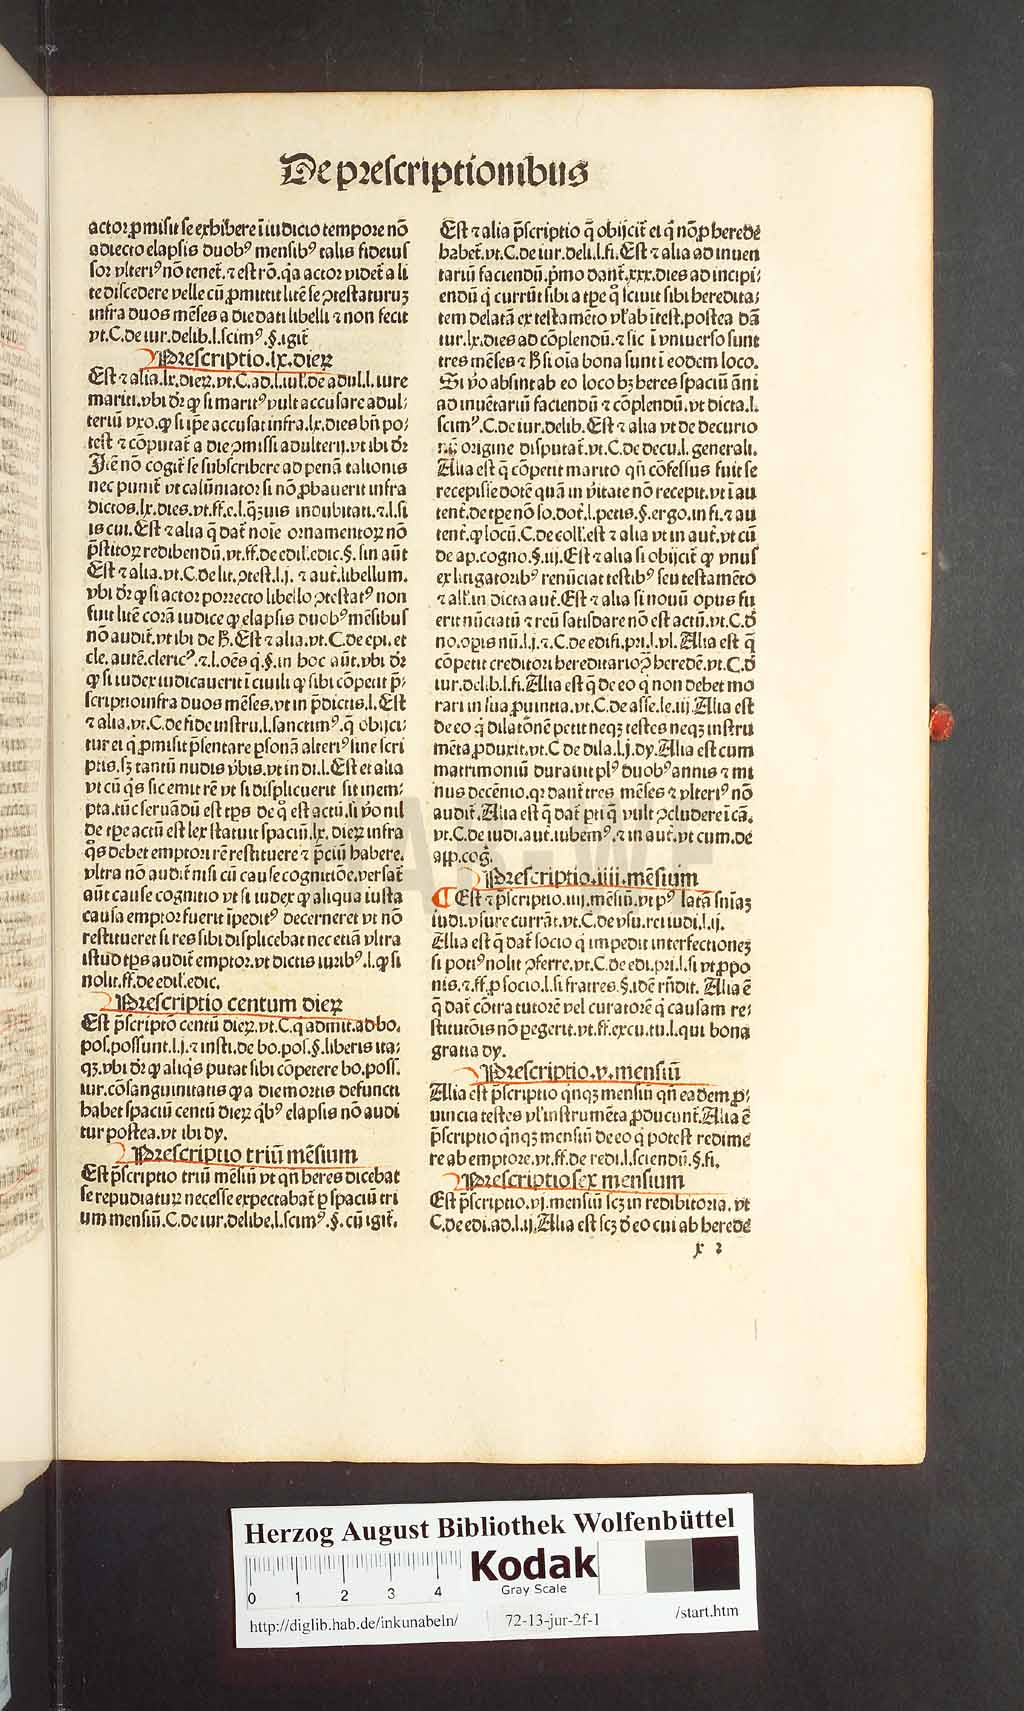 De prescriptionibus
actor ꝓmisit se exhibere ī iudicio tempore nō
adiecto elapsis duobꝰ mensibꝰ talis fideius
sor vlteriꝰ nō tenet᷑. ⁊ est rō. qa actor videt᷑ a li
te discedere velle cū ꝓmittit litē se ꝓtestaturuꝫ
infra duos mēses a die dati libelli ⁊ non fecit
vt. C. de iur. delib. l. scimꝰ. §. igit᷑
Prescriptio .lx. dieꝝ
Est ⁊ alia .lx. dieꝝ. vt. C. ad. l. iul᷑. de adul. l. iure
mariti. vbi dr̄ ꝙ si maritꝰ vult accusare adul-
teriū vxo. ꝙ si ip̄e accusat infra .lx. dies bn̄ po-
test ⁊ cōputat᷑ a die ꝯmissi adulterij. vt ibi dr̄
Itē nō cogit᷑ se subscribere ad penā talionis
nec punit᷑ vt calūniator si nō ꝓbauerit infra
dictos .lx. dies. vt. ff. e. l. qꝫuis indubitati. ⁊. l. si
is cui. Est ⁊ alia q̄ dat᷑ noīe ornamentoꝝ nō
p̄stitoꝝ redibendū. vt. ff. de edil᷑. edic. §. sin aūt
Est ⁊ alia. vt. C. de lit. ꝯtest. l. j. ⁊ aut᷑. libellum.
vbi dr̄ ꝙ si actor porrecto libello ꝯtestatꝰ non
fuit litē corā iudice ꝙ elapsis duobꝰ mēsibus
nō audit᷑. vt ibi de H̄. Est ⁊ alia. vt. C. de epi. et
cle. autē. clericꝰ. ⁊. l. oēs q. §. in hoc aūt. vbi dr̄
ꝙ si iudex iudicauerit ī ciuili ꝙ sibi cōpetit p̄-
scriptio infra duos mēses. vt in p̄dictis. l. Est
⁊ alia. vt. C. de fide instru. l. sanctimꝰ. q̄ obijci-
tur ei q̇ ꝓmisit p̄sentare ꝑsonā alteriꝰ sine scri
ptis. sꝫ tantū nudis v̄bis. vt in di. l. Est et alia
vt cū q̇s sic emit rē vt si displicuerit sit inem-
pta. tūc seruādū est tp̄s de qͦ est actū. si v̄o nil
de tp̄e actū est lex statuit spaciū .lx. dieꝝ infra
q̄s debet emptori rē restituere ⁊ p̄ciū habere.
vltra nō audit᷑ nisi cū cause cognitiōe. versat᷑
aūt cause cognitio vt si iudex ꝙ aliqua iusta
causa emptor fuerit īpeditꝰ decerneret vt nō
restitueret si res sibi displicebat nec etiā vltra
istud tp̄s audit᷑ emptor. vt dictis iuribꝰ. l. ꝙ si
nolit. ff. de edil᷑. edic.
Prescriptio centum dieꝝ
Est p̄scriptō centū dieꝝ. vt. C. q admit. ad bo.
pos. possunt. l. j. ⁊ insti. de bo. pos. §. liberis ita-
qꝫ. vbi dr̄ ꝙ aliq̇s putat sibi cōpetere bo. poss.
iur. cōsanguinitatis ꝙ a die mortis defuncti
habet spaciū centū dieꝝ q̇bꝰ elapsis nō audi
tur postea. vt ibi dy.
Prescriptio triū mēsium
Est p̄scriptio triū mēsiū vt qn̄ heres dicebat
se repudiaturꝝ necesse expectabat᷑ ꝑ spaciū tri
um mensiū. C. de iur. delibe. l. scimꝰ. §. cū igit᷑.
Est ⁊ alia p̄scriptio q̄ obijcit᷑ ei q̇ nō ꝓ herede
habet᷑. vt. C. de iur. deli. l. fi. Est ⁊ alia ad inuen
tariū faciendū. p̄mo dant᷑ .xxx. dies ad incipi-
endū q̇ currūt sibi a tp̄e qͦ sciuit sibi heredita-
tem delatā ex testamēto vl᷑ ab ītest. postea dā
tur .lx. dies ad cōplendū. ⁊ sic ī vniuerso sunt
tres mēses ⁊ H̄ si oīa bona sunt ī eodem loco.
Si v̄o absint ab eo loco hꝫ heres spaciū āni
ad inuētariū faciendū ⁊ cōplendū. vt dicta. l.
scimꝰ. C. de iur. delib. Est ⁊ alia vt de decurio
nū origine disputat᷑. vt. C. de decu. l. generali.
Alia est q̄ cōpetit marito qn̄ cōfessus fuit se
recepisse dotē quā in v̄itate nō recepit. vt ī au
tent᷑. de tp̄e nō so. dot᷑. l. petis. §. ergo. in fi. ⁊ au
tent᷑. ꝙ locū. C. de coll᷑. est ⁊ alia vt in aut᷑. vt cū
de ap. cogno. §. iij. Est ⁊ alia si obijcit᷑ ꝙ vnus
ex litigatoribꝰ renūciat testibꝰ seu testamēto
⁊ all᷑. in dicta aut᷑. Est ⁊ alia si nouū opus fu
erit nūciatū ⁊ reū satisdare nō est actū. vt. C. d̄
no. opis nū. l. j. ⁊. C. de edifi. pri. l. vl. Alia est q̄
cōpetit creditori hereditario ꝯ heredē. vt. C. d̄
iur. delib. l. fi. Alia est q̄ de eo q̇ non debet mo
rari in sua ꝓuintia. vt. C. de asse. le. iij. Alia est
de eo q̇ dilatōnē petit neqꝫ testes neqꝫ instru
mēta ꝓduxit. vt. C de dila. l. j. dy. Alia est cum
matrimoniū durauit plꝰ duobꝰ annis ⁊ mi
nus decēnio. qꝛ dant᷑ tres mēses ⁊ vlteriꝰ nō
audit᷑. Alia est q̄ dat᷑ ꝑti q̄ vult ꝯcludere ī cā.
vt. C. de iudi. aut᷑. iubemꝰ. ⁊ in aut᷑. vt cum. de
app. cog̅.
Prescriptio .iiij. mēsium
¶ Est ⁊ p̄scriptio .iiij. mēsiū. vt pꝰ latā sn̄iaꝫ
iudi. vsure currāt. vt. C. de vsu. rei iudi. l. ij.
Alia est q̄ dat᷑ socio q̇ impedit interfectioneꝫ
si potiꝰ nolit ꝓferre. vt. C. de edi. pri. l. si vt ꝓpo
nis. ⁊. ff. ꝓ socio. l. si fratres. §. idē rn̄dit. Alia ē
q̄ dat᷑ cōtra tutorē vel curatorē q̇ causam re-
stitutōis nō ꝑegerit. vt. ff. excu. tu. l. qui bona
gratia dy.
Prescriptio .v. mensiū
Alia est p̄scriptio q̇nqꝫ mensiū qn̄ ea dem ꝓ-
uincia testes vl᷑ instrumēta ꝓducunt᷑. Alia ē
p̄scriptio q̇nqꝫ mensiū de eo q̇ potest redime
re ab emptore. vt. ff. de redi. l. sciendū. §. fi.
Prescriptio sex mensium
Est p̄scriptio .vj. mensiū scꝫ in redibitoria. vt
C. de edi. ad. l. ij. Alia est scꝫ d̄ eo cui ab herede
x 2
HAB-WF
Herzog August Bibliothek Wolfenbüttel
0 1 2 3 4
Kodak
Gray Scale
http://diglib.hab.de/inkunabeln/ 72-13-jur-2f-1 /start.htm